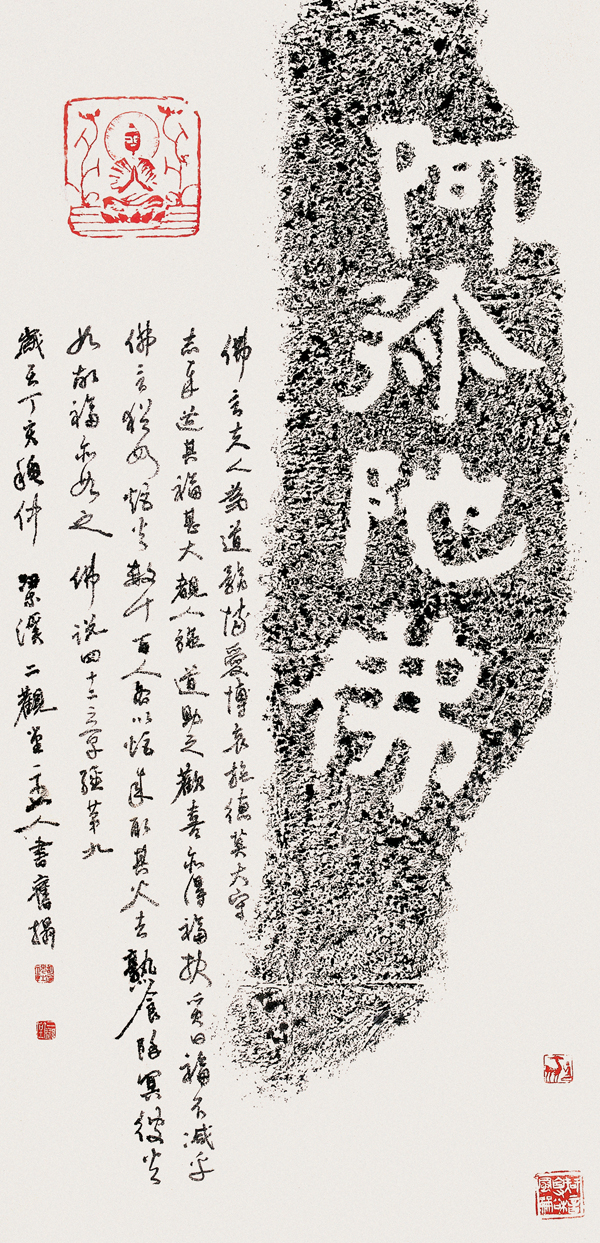 阿弥陁佛
佛言夫人為道務博愛博哀施德莫大守
志奉道其福甚大觀人施道助之歡喜亦得福報質曰福不減乎
佛言猶如炬火數千百人各以炬來取其火去熟食除冥彼火
如故福亦如之 佛說四十二章經第九
歲在丁亥穐仲 梁溪二觀堂主人書舊搨